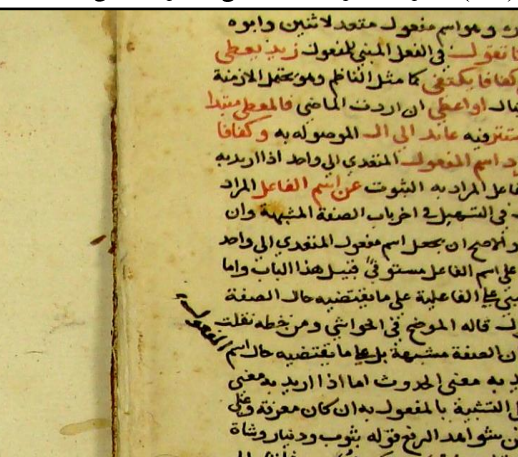 وهو اسم مفعول متعد لاثنين وابوه
كما تقول في الفعل المبني للمفعول زيد يعطى
كفافا يكتفي كما مثل الناظم وهو يحتمل الازمنة
او اعطي ان اردت الماضي فالمعطى مبتدا
مستتر فيه عائد الى ال الموصولة به وكفافا
اسم المفعول المتعدي الى واحد اذا اريد به
المراد به الثبوت عن اسم الفاعل المراد
في التسهيل في اخر باب الصفة المشبهة وان
والاصح ان يجعل اسم مفعول المتعدي الى واحد
على اسم الفاعل مستوفى قبيل هذا الباب واما
الفاعلية على ما يقتضيه حال الصفة
قاله الموضح في الحواشي ومن خطه نقلت
الصفة مشبهة بل على ما يقتضيه حال اسم
المفعول
به معنى الحدوث اما اذا اريد به معنى
التشبيه بالمفعول به ان كان معرفة وعلى
شواهد الرفع قوله بثوب ودينار وشاة